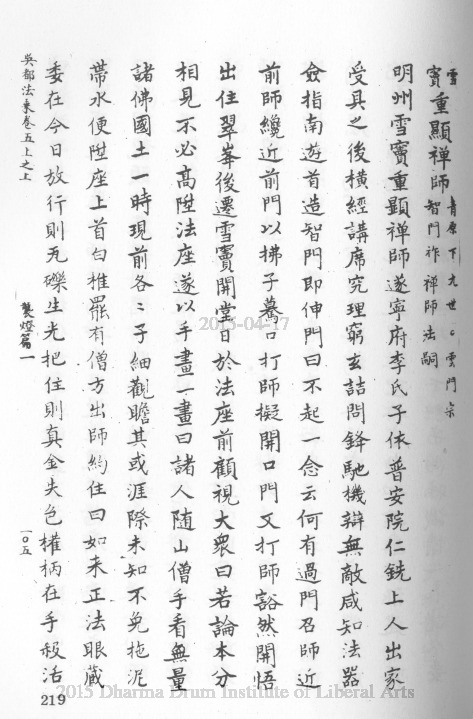 雪竇重顯禪師 青原下九世。雲門宗
智門祚禪師法嗣
明州雪竇重顯禪師遂寧府李氏子依普安院仁銑上人出家
受具之後橫經講席究理窮玄詰問鋒馳機辯無敵咸知法器
僉指南遊首造智門即伸門曰不起一念云何有過門召師近
前師纔近前門以拂子驀口打師擬開口門又打師豁然開悟
出住翠峯後遷雪竇開堂日於法座前顧視大衆曰若論本分
相見不必高陞法座遂以手畫一畫曰諸人隨山僧手看無量
諸佛國土一時現前各〻子細觀瞻其或涯際未知不免拖泥
帶水便陞座上首白椎罷有僧方出師約住曰如来正法眼藏
委在今日放行則瓦礫生光把住則真金失色權柄在手殺活
吳都法乘卷五上之上
製燈篇一
一〇五
219
2015-04-17
2015 Dharma Drum Institute of Liberal Arts